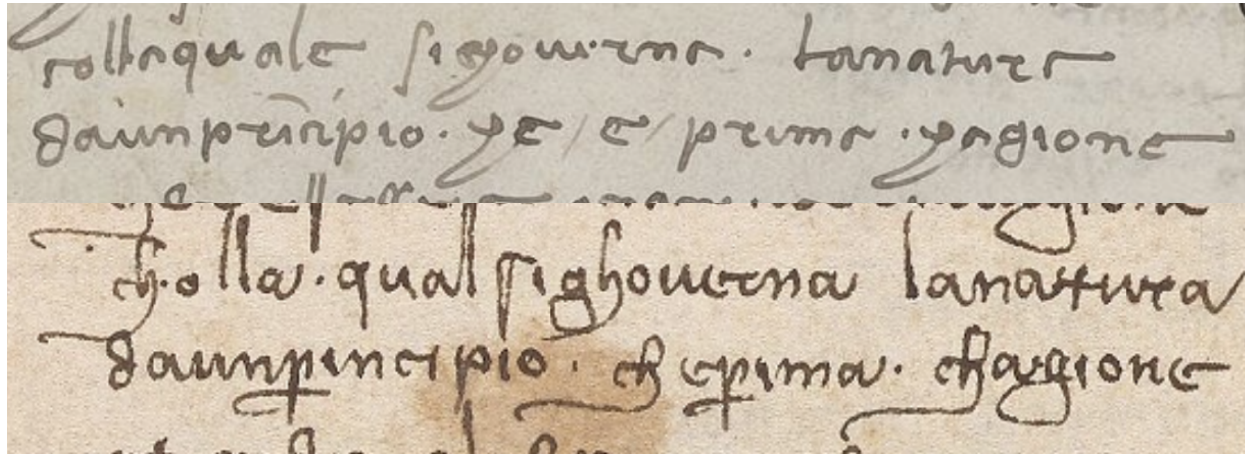 collaquale sigoverna · lanatura
daunprīcipio · che / e / prima · chagione
cholla · qual sighouerna lanattura
daunpincipio · ch epima · chagione